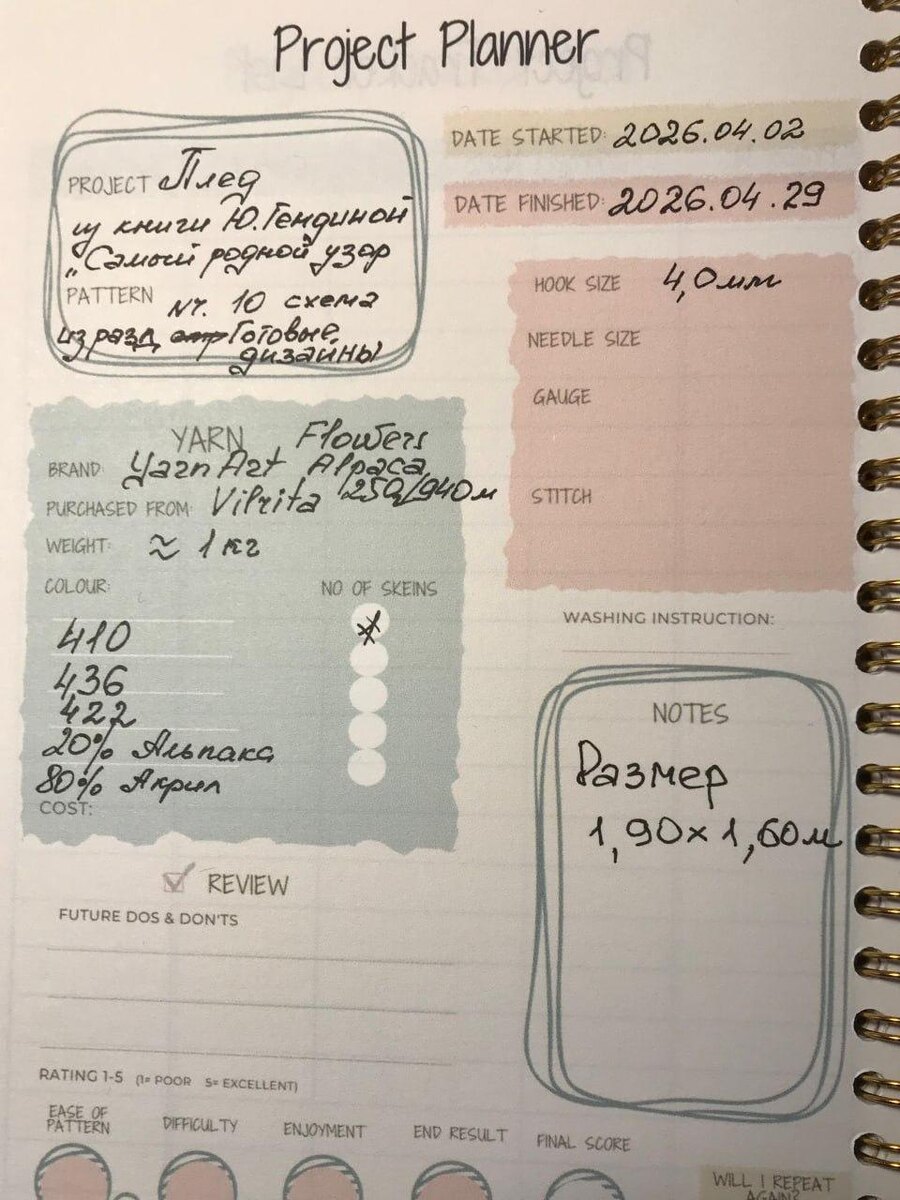 Project Planner
PROJECT Плед
из книги Ю.Гендиной
"Самый родной узор
PATTERN № 10 схема
из разд Готовые
дизайны
DATE STARTED: 2026.04.02
DATE FINISHED: 2026.04.29
HOOK SIZE 4,0мм
NEEDLE SIZE
GAUGE
STITCH
YARN Flowers
BRAND: YarnArt Alpaca
PURCHASED FROM: Vilrita 250g/940м
WEIGHT: ≈ 1 кг
COLOUR: NO OF SKEINS
410
436
422
20% Альпака
80% Акрил
COST:
WASHING INSTRUCTION:
NOTES
Размер
1,90×1,60м
REVIEW
FUTURE DOS & DON'TS
RATING 1-5 (1= POOR 5= EXCELLENT)
EASE OF
PATTERN
DIFFICULTY
ENJOYMENT
END RESULT
FINAL SCORE
WILL I REPEAT
AGAIN